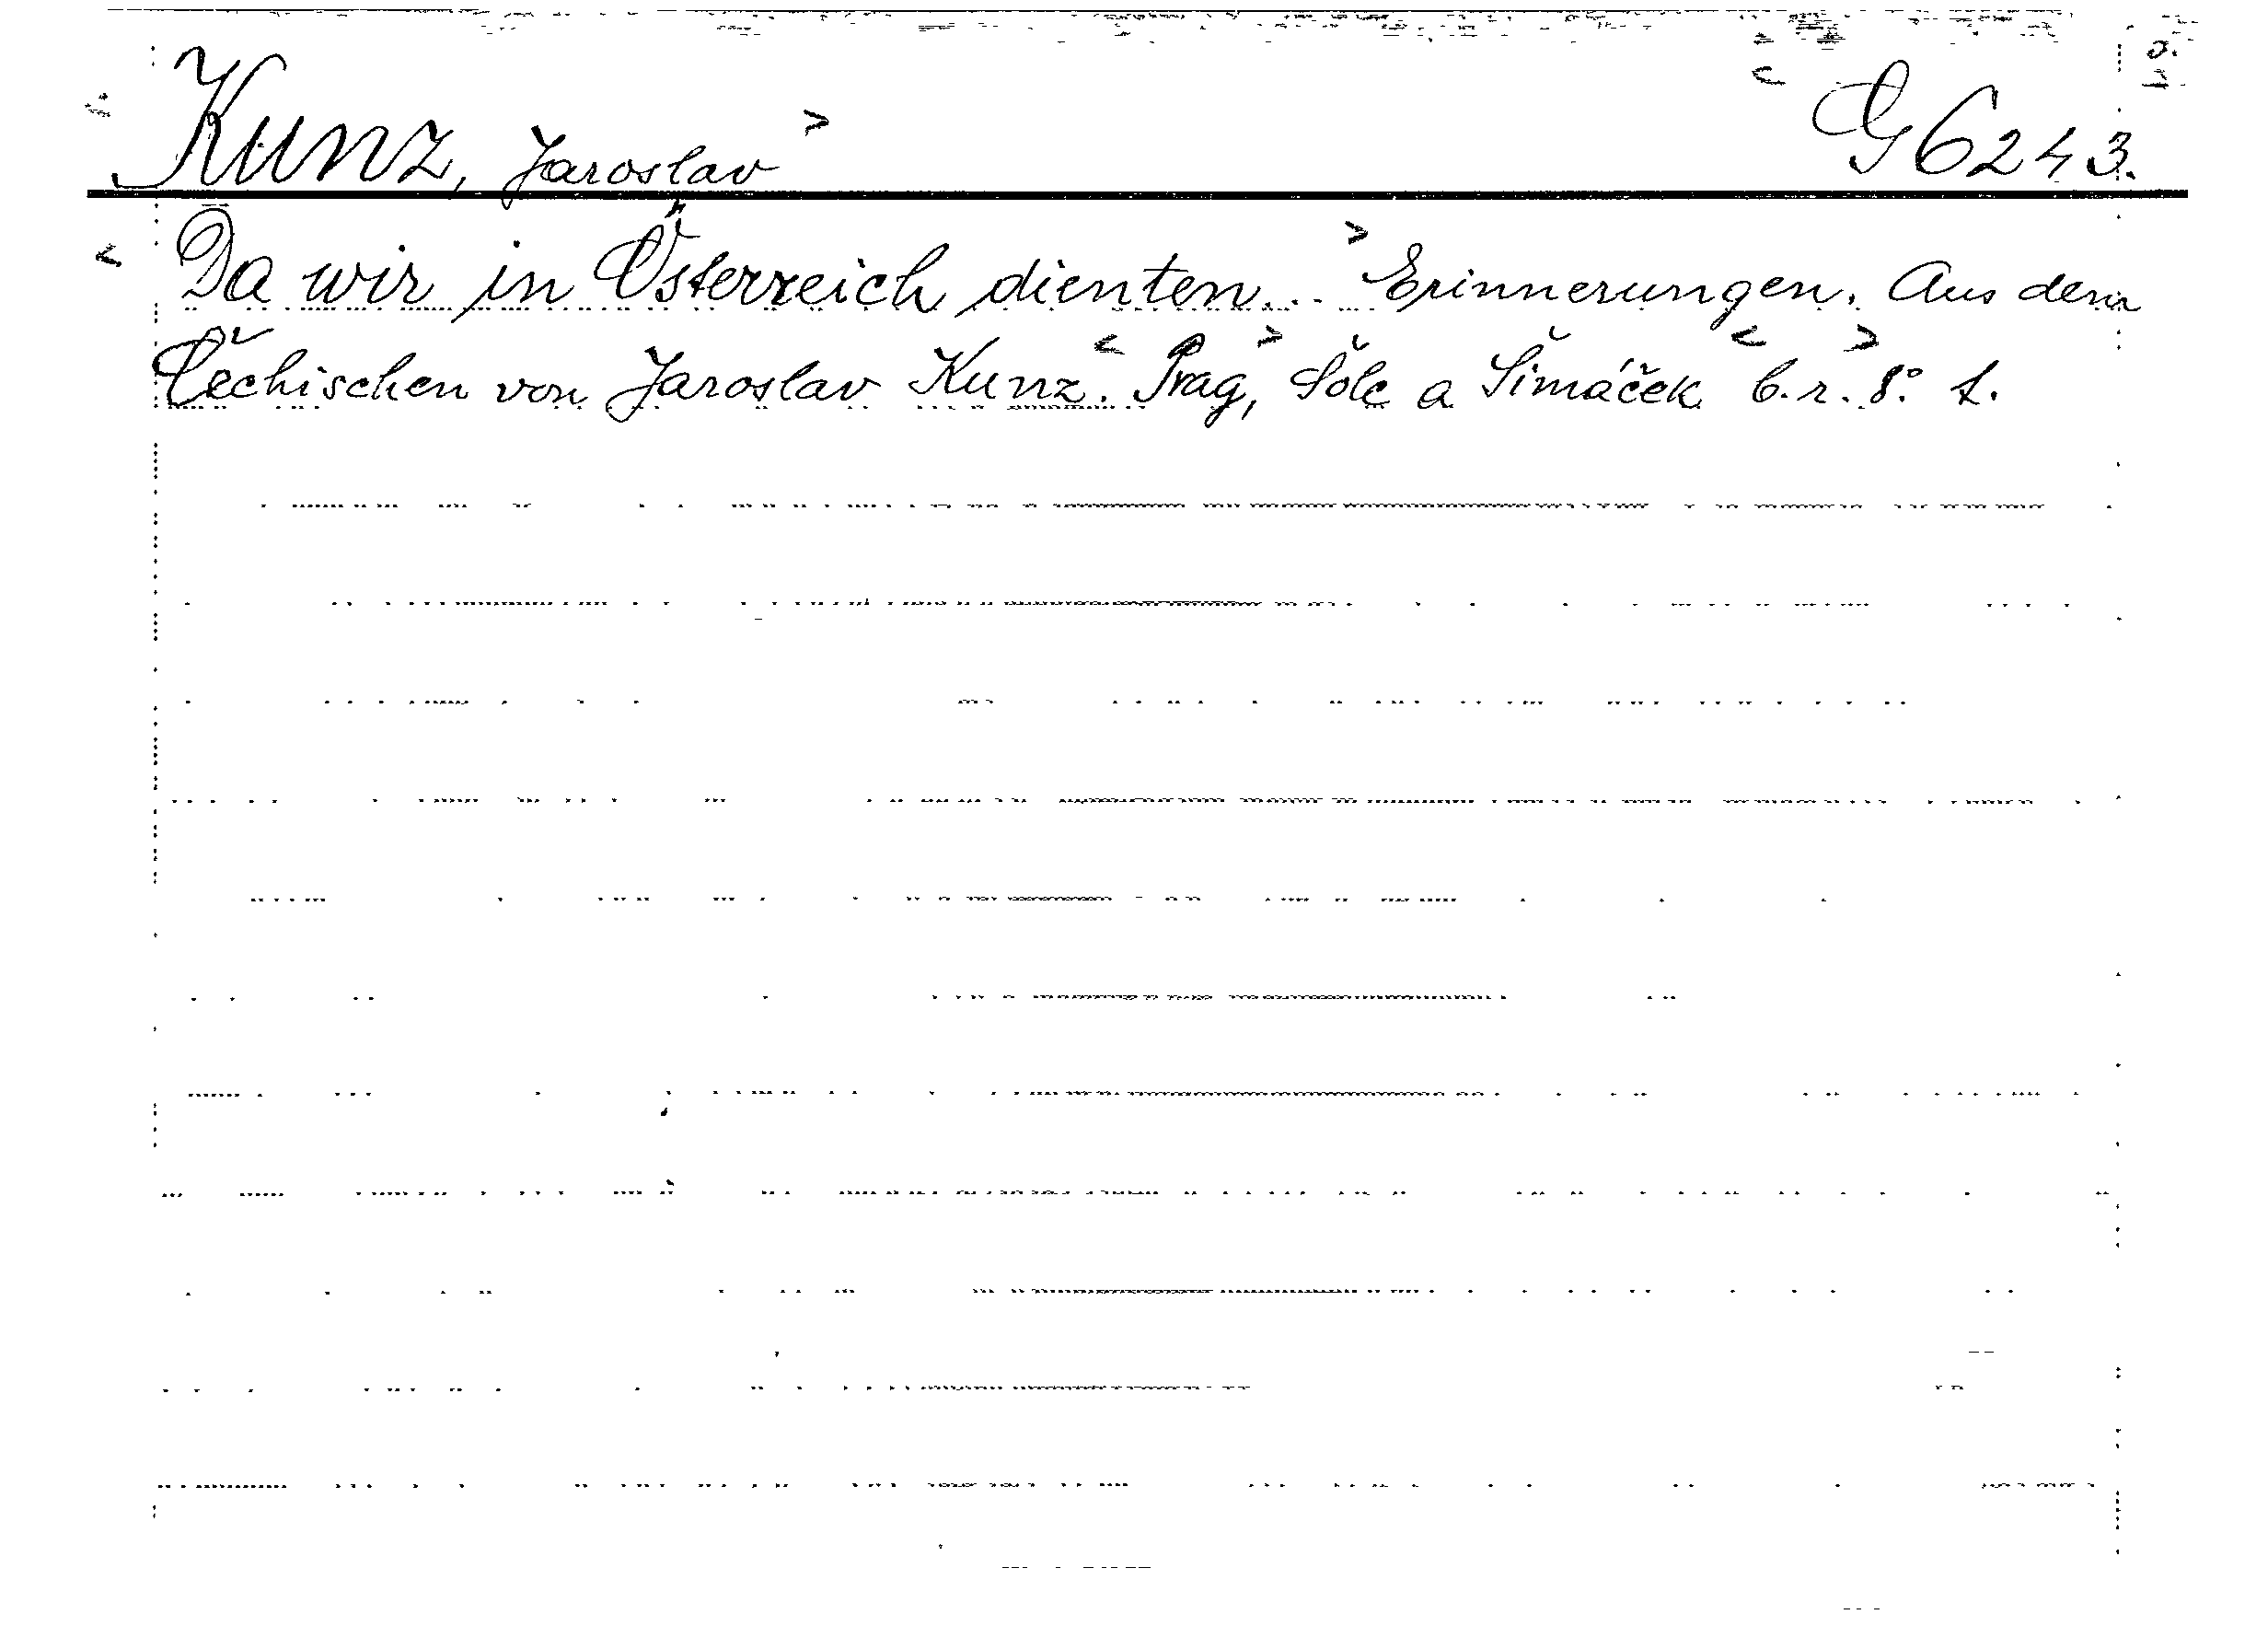 Kunz, Jaroslav G 6243.
Da wir in Österreich dienten... Erinnerungen. Aus dem
Čechischen von Jaroslav Kunz. Prag, Šolc a Šimáček b.r. 8°